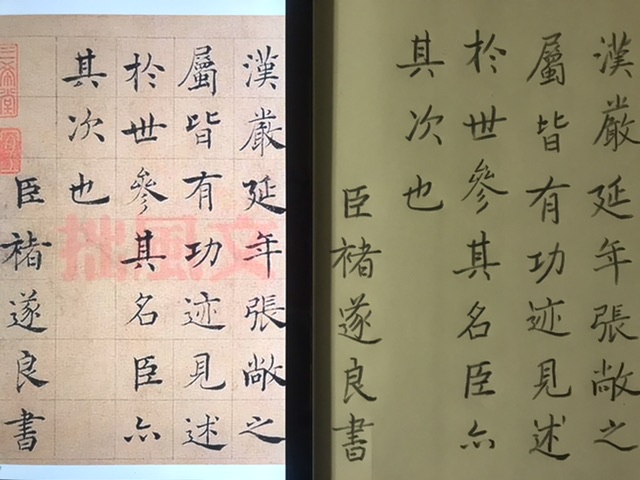 漢嚴延年張敞之
屬皆有功迹見述
於世參其名臣亦
其次也
臣褚遂良書
三希堂
拙風文
漢嚴延年張敞之
屬皆有功迹見述
於世參其名臣亦
其次也
臣褚遂良書